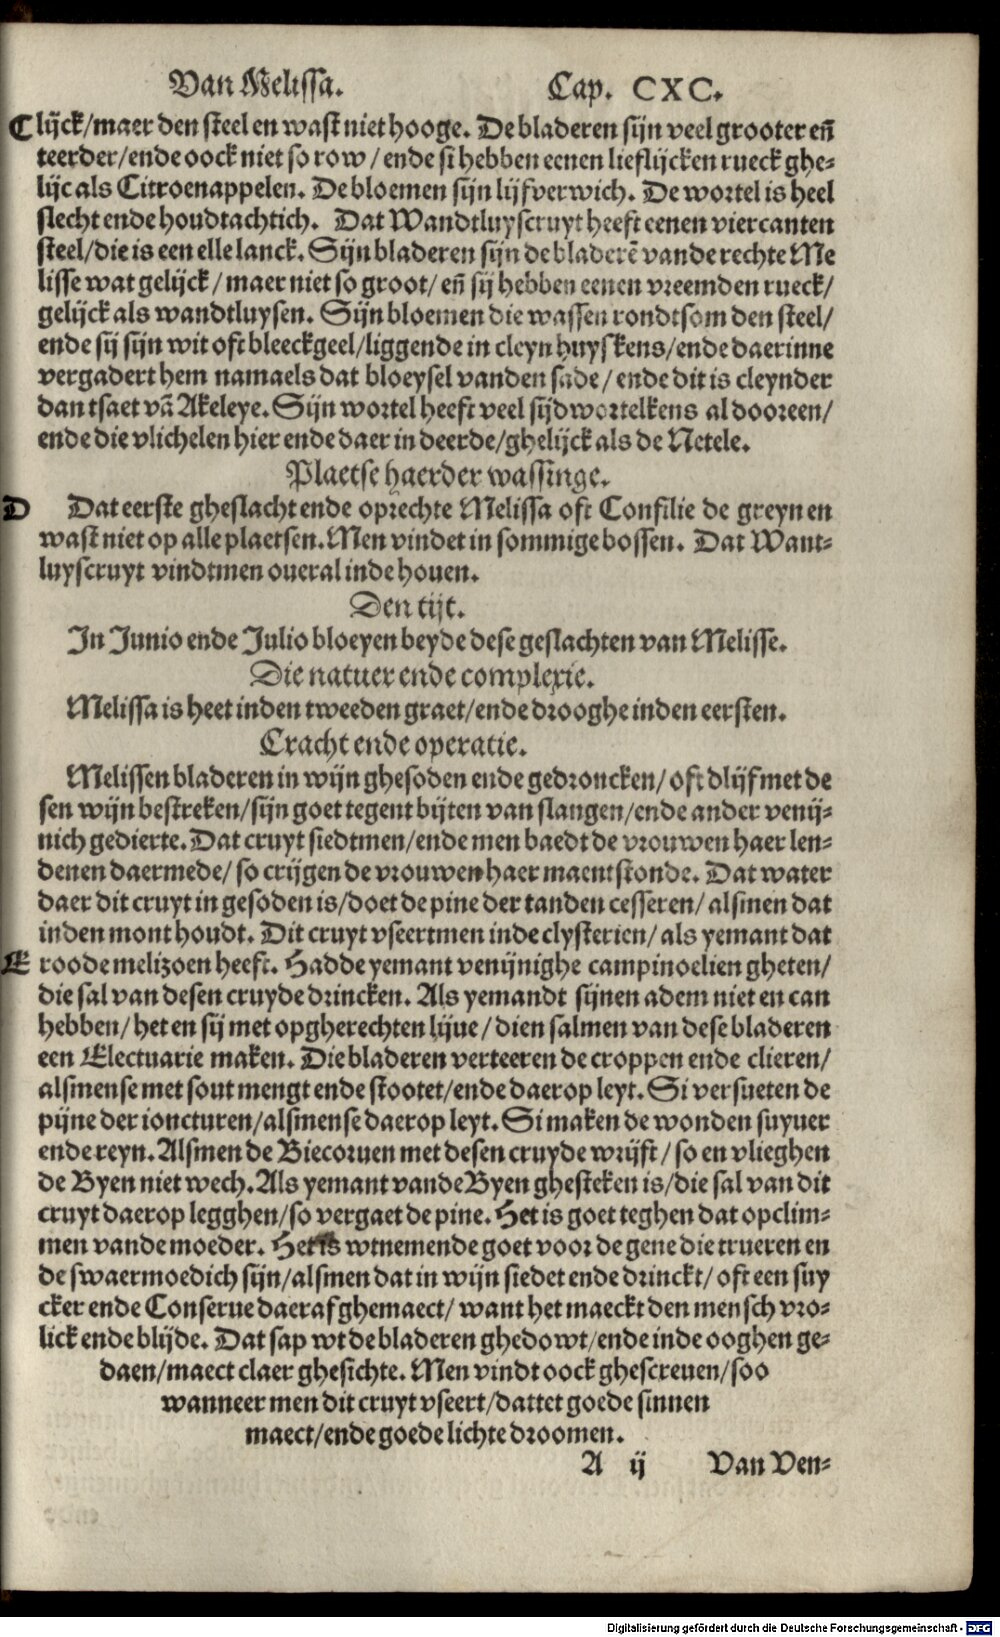 Van Melissa. Cap. CXC.
C lijck/maer den steel en wast niet hooge. De bladeren sijn veel grooter eñ
teerder/ende oock niet so row/ende si hebben eenen lieflijcken rueck ghe⸗
lijc als Citroenappelen. De bloemen sijn lijfverwich. De wortel is heel
slecht ende houdtachtich. Dat Wandtluyscruyt heeft eenen viercanten
steel/die is een elle lanck. Sijn bladeren sijn de bladerē vande rechte Me
lisse wat gelijck/maer niet so groot/eñ sij hebben eenen vreemden rueck/
gelijck als wandtluysen. Sijn bloemen die wassen rondtsom den steel/
ende sij sijn wit oft bleeckgeel/liggende in cleyn huyskens/ende daerinne
vergadert hem namaels dat bloeysel vanden sade/ende dit is cleynder
dan tsaet vã Akeleye. Sijn wortel heeft veel sijdwortelkens al dooreen/
ende die vlichelen hier ende daer in deerde/ghelijck als de Netele.
Plaetse haerder wassinge.
D Dat eerste gheslacht ende oprechte Melissa oft Consilie de greyn en
wast niet op alle plaetsen. Men vindet in sommige bossen. Dat Want⸗
luyscruyt vindtmen oueral inde houen.
Den tijt.
In Junio ende Julio bloeyen beyde dese geslachten van Melisse.
Die natuer ende complexie.
Melissa is heet inden tweeden graet/ende drooghe inden eersten.
Cracht ende operatie.
Melissen bladeren in wijn ghesoden ende gedroncken/oft dlijf met de
sen wijn bestreken/sijn goet tegent bijten van slangen/ende ander venij⸗
nich gedierte. Dat cruyt siedtmen/ende men baedt de vrouwen haer len⸗
denen daermede/so crijgen de vrouwen haer maentstonde. Dat water
daer dit cruyt in gesoden is/doet de pine der tanden cesseren/alsmen dat
inden mont houdt. Dit cruyt vseertmen inde clysterien/als yemant dat
E roode melizoen heeft. Hadde yemant venijnighe campinoelien gheten/
die sal van desen cruyde drincken. Als yemandt sijnen adem niet en can
hebben/het en sij met opgherechten lijue/dien salmen van dese bladeren
een Electuarie maken. Die bladeren verteeren de croppen ende clieren/
alsmense met sout mengt ende stootet/ende daerop leyt. Si versueten de
pijne der ioncturen/alsmense daerop leyt. Si maken de wonden suyuer
ende reyn. Alsmen de Biecoruen met desen cruyde wrijft/so en vlieghen
de Byen niet wech. Als yemant vande Byen ghesteken is/die sal van dit
cruyt daerop legghen/so vergaet de pine. Het is goet teghen dat opclim⸗
men vande moeder. Het is wtnemende goet voor de gene die trueren en
de swaermoedich sijn/alsmen dat in wijn siedet ende drinckt/oft een suy
cker ende Conserue daeraf ghemaect/want het maeckt den mensch vro⸗
lick ende blijde. Dat sap wt de bladeren ghedowt/ende inde ooghen ge⸗
daen/maect claer ghesichte. Men vindt oock ghescreuen/soo
wanneer men dit cruyt vseert/dattet goede sinnen
maect/ende goede lichte droomen.
A ij Van Ven⸗
Digitalisierung gefördert durch die Deutsche Forschungsgemeinschaft - DFG